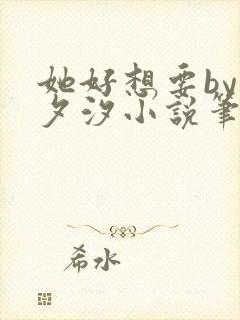 她好想要by
夕汐小說筆
希水